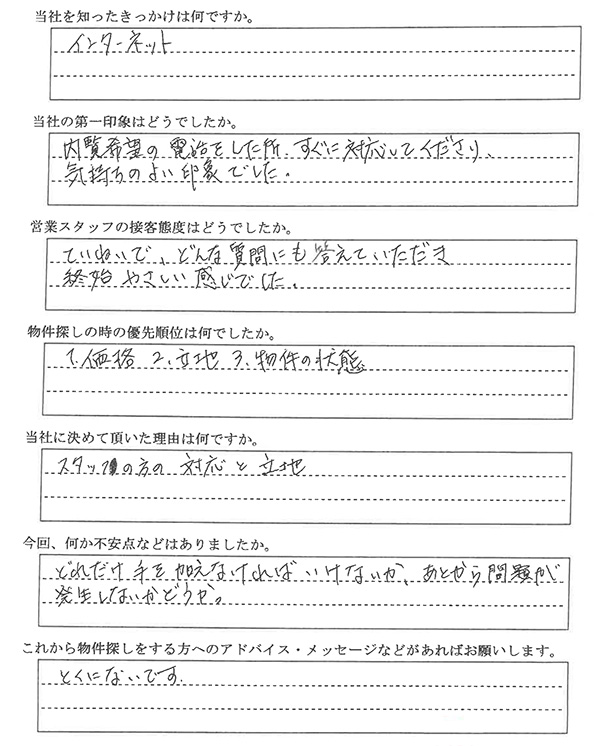 当社を知ったきっかけは何ですか。
インターネット
当社の第一印象はどうでしたか。
内覧希望の電話をした所、すぐに対応してくださり、
気持ちのよい印象でした。
営業スタッフの接客態度はどうでしたか。
ていねいで、どんな質問にも答えていただき
終始やさしい感じでした。
物件探しの時の優先順位は何でしたか。
1、価格 2、立地 3、物件の状態
当社に決めて頂いた理由は何ですか。
スタッフの方の対応と立地
今回、何か不安点などはありましたか。
どれだけ手を加えなければいけないか、あとから問題が
発生しないかどうか。
これから物件探しをする方へのアドバイス・メッセージなどがあればお願いします。
とくにないです。